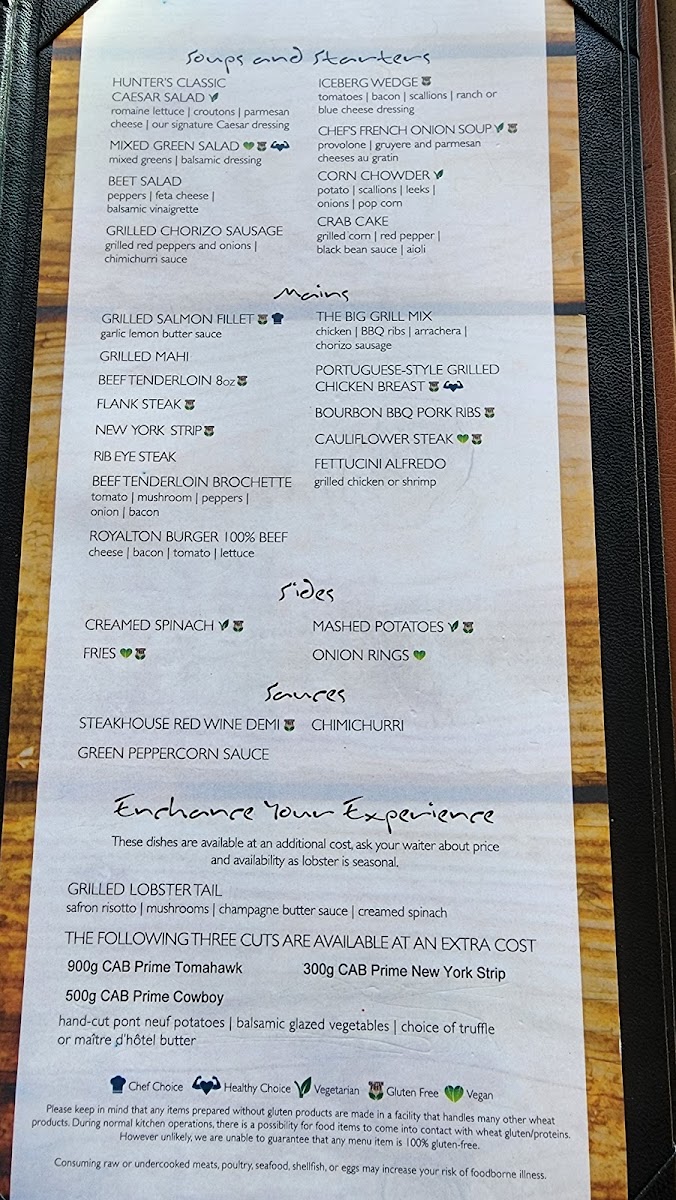 Soups and Starters
HUNTER'S CLASSIC
CAESAR SALAD
romaine lettuce | croutons | parmesan
cheese | our signature Caesar dressing
MIXED GREEN SALAD
mixed greens | balsamic dressing
BEET SALAD
peppers | feta cheese |
balsamic vinaigrette
GRILLED CHORIZO SAUSAGE
grilled red peppers and onions |
chimichurri sauce
ICEBERG WEDGE
tomatoes | bacon | scallions | ranch or
blue cheese dressing
CHEF'S FRENCH ONION SOUP
provolone | gruyere and parmesan
cheeses au gratin
CORN CHOWDER
potato | scallions | leeks |
onions | pop corn
CRAB CAKE
grilled corn | red pepper |
black bean sauce | aioli
Mains
GRILLED SALMON FILLET
garlic lemon butter sauce
GRILLED MAHI
BEEF TENDERLOIN 8oz
FLANK STEAK
NEW YORK STRIP
RIB EYE STEAK
BEEF TENDERLOIN BROCHETTE
tomato | mushroom | peppers |
onion | bacon
ROYALTON BURGER 100% BEEF
cheese | bacon | tomato | lettuce
THE BIG GRILL MIX
chicken | BBQ ribs | arrachera |
chorizo sausage
PORTUGUESE-STYLE GRILLED
CHICKEN BREAST
BOURBON BBQ PORK RIBS
CAULIFLOWER STEAK
FETTUCINI ALFREDO
grilled chicken or shrimp
Sides
CREAMED SPINACH
FRIES
MASHED POTATOES
ONION RINGS
Sauces
STEAKHOUSE RED WINE DEMI
CHIMICHURRI
GREEN PEPPERCORN SAUCE
Enchance Your Experience
These dishes are available at an additional cost, ask your waiter about price
and availability as lobster is seasonal.
GRILLED LOBSTER TAIL
safron risotto | mushrooms | champagne butter sauce | creamed spinach
THE FOLLOWING THREE CUTS ARE AVAILABLE AT AN EXTRA COST
900g CAB Prime Tomahawk
300g CAB Prime New York Strip
500g CAB Prime Cowboy
hand-cut pont neuf potatoes | balsamic glazed vegetables | choice of truffle
or maître d'hôtel butter
Chef Choice Healthy Choice Vegetarian Gluten Free Vegan
Please keep in mind that any items prepared without gluten products are made in a facility that handles many other wheat
products. During normal kitchen operations, there is a possibility for food items to come into contact with wheat gluten/proteins.
However unlikely, we are unable to guarantee that any menu item is 100% gluten-free.
Consuming raw or undercooked meats, poultry, seafood, shellfish, or eggs may increase your risk of foodborne illness.